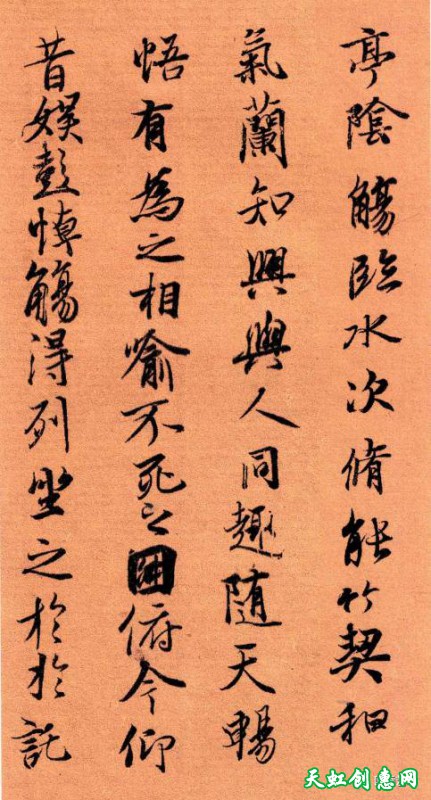 亭陰觴臨水次脩能竹契和
氣蘭知興與人同趣隨天暢
悟有為之相喻不死之俯今仰
昔娛彭悼觴得列坐之於於託
天虹创惠网